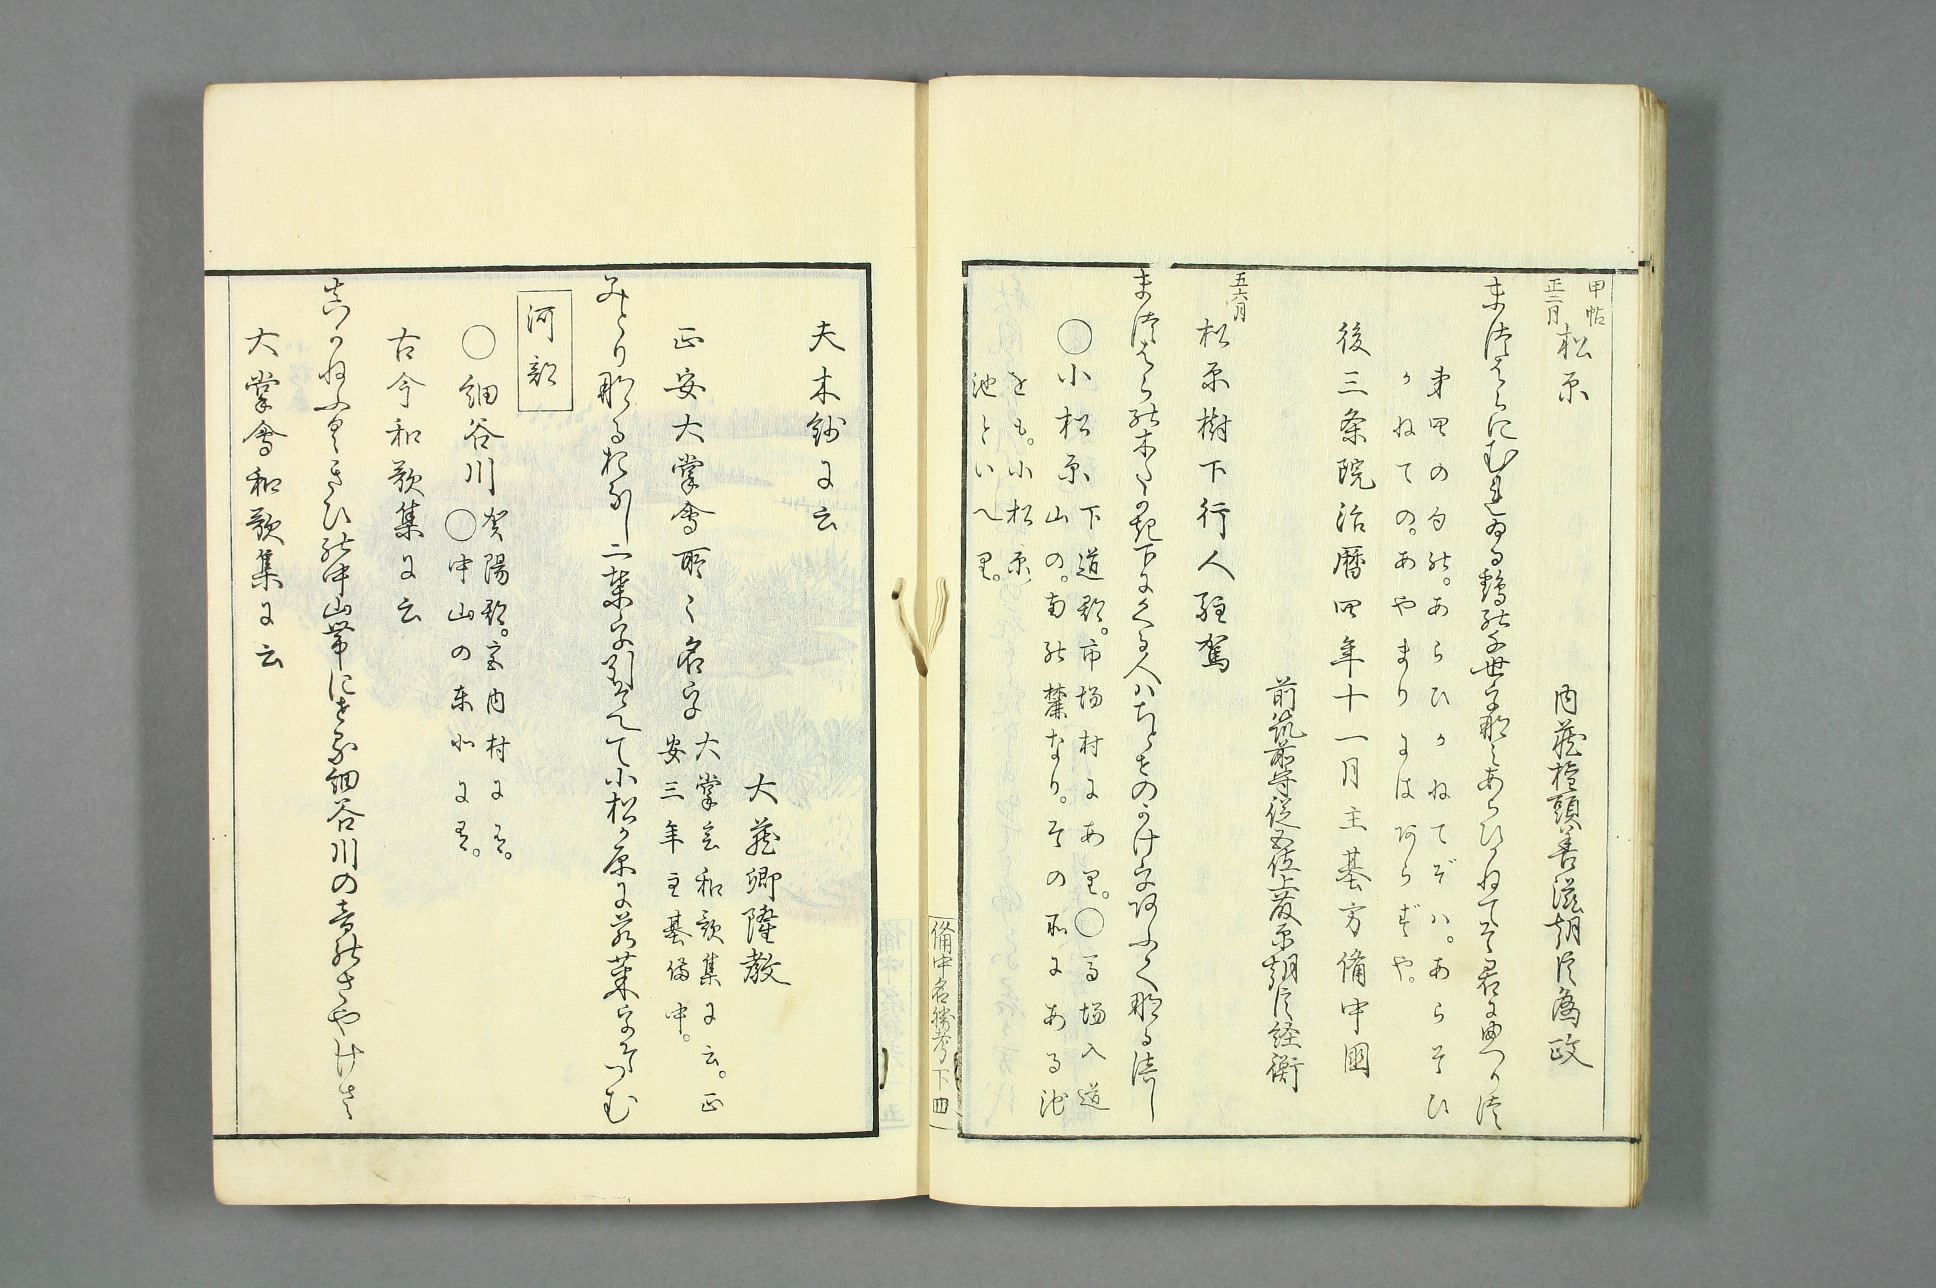 甲帖
正二月
松原
内蔵権頭善滋朝臣為政
まつはらにむれゐる鶴の千世をなみあらひかねてそ君によつつ
第四の句の。あらひかねてぞハ。あらそひ
かねての。あやまりにはあらずや。
後三条院治暦四年十一月主基方備中國
前筑前守従五位上藤原朝臣経衡
五六月
松原樹下行人駐駕
まつはらの木たかき下によるハちとせのかけをおふくなるへし
○小松原
下道郡。市場村にあり。○馬場入道
山の。南の麓なり。その所にある池
をも。小松原
池といへり。
備中名勝考下 四
夫木鈔に云
大蔵卿隆教
正安大掌會所々名字
大掌会和歌集に云。正
安三年主基備中。
みとりなるおなし二葉を引そへて小松か原に若菜をそつむ
河部
○細谷川
賀陽郡。宮内村に有。
○中山の東北に有。
古今和歌集に云
真かねふくきひの中山帯にせる細谷川の音のさやけさ
大掌會和歌集に云